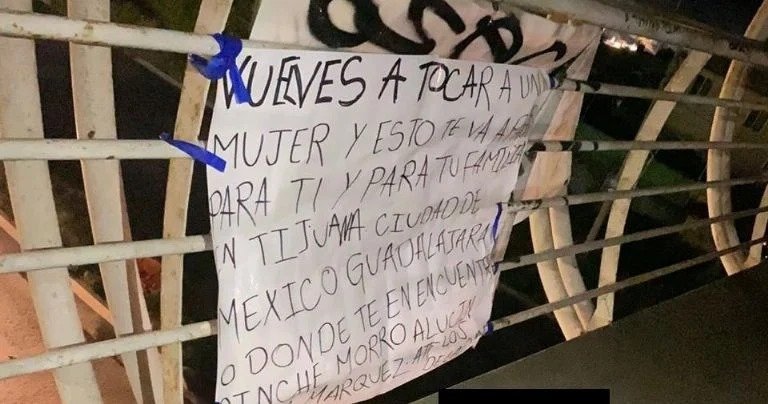 VUELVES A TOCAR A UN
MUJER Y ESTO TE VA A
PARA TI Y PARA TU FAMILIA
N TIJUANA CIUDAD DE
MEXICO GUADALAJARA
O DONDE TE EN ENCUENTR
PINCHE MORRO ALUCIN
MARQUEZ. ATT LOS
DE